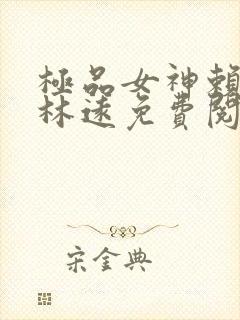 極品女神賴
林遠免費閱
宋金典